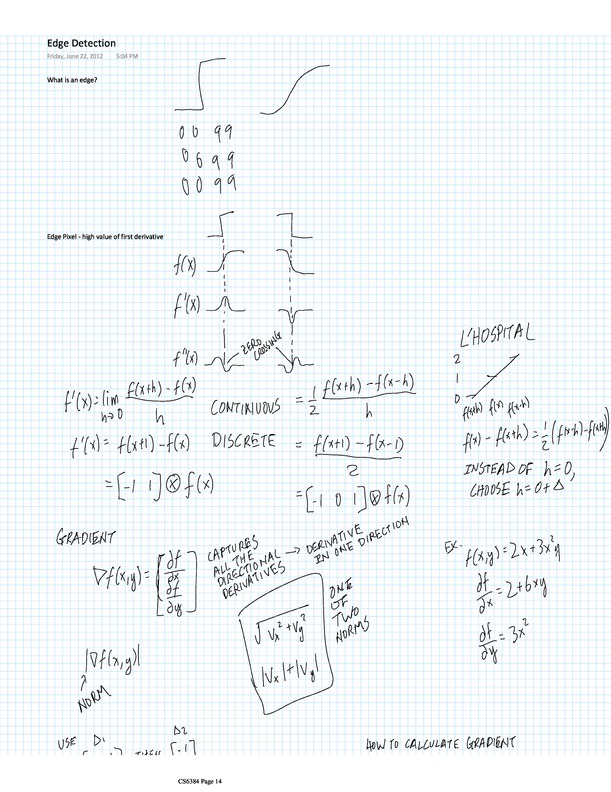 Edge Detection
Friday, June 22, 2012 5:04 PM
What is an edge?
0 0 99
0 0 99
0 0 99
Edge Pixel - high value of first derivative
f(x)
f'(x)
f''(x)
ZERO CROSSING
L'HOSPITAL
2
1
0
f(x+h) f(x) f(x+h)
f'(x) = lim h→0 f(x+h) - f(x) / h CONTINUOUS = 1/2 f(x+h) - f(x-h) / h
f(x) - f(x+h) = 1/2 (f(x-h) - f(x+h))
f'(x) = f(x+1) - f(x) DISCRETE = f(x+1) - f(x-1) / 2
= [-1 1] ⊗ f(x)
= [-1 0 1] ⊗ f(x)
INSTEAD OF h=0,
CHOOSE h=0+Δ
GRADIENT
∇f(x,y) = [∂f/∂x ∂f/∂y]
CAPTURES
ALL THE
DIRECTIONAL
DERIVATIVES
→ DERIVATIVE
IN ONE DIRECTION
EX. f(x,y) = 2x+3x²y
∂f/∂x = 2+6xy
∂f/∂y = 3x²
√Vx²+Vy²
|Vx|+|Vy|
ONE
OF
TWO
NORMS
|∇f(x,y)|
↑
NORM
USE Δ1 THEN Δ2 [-1]
HOW TO CALCULATE GRADIENT
CS6384 Page 14